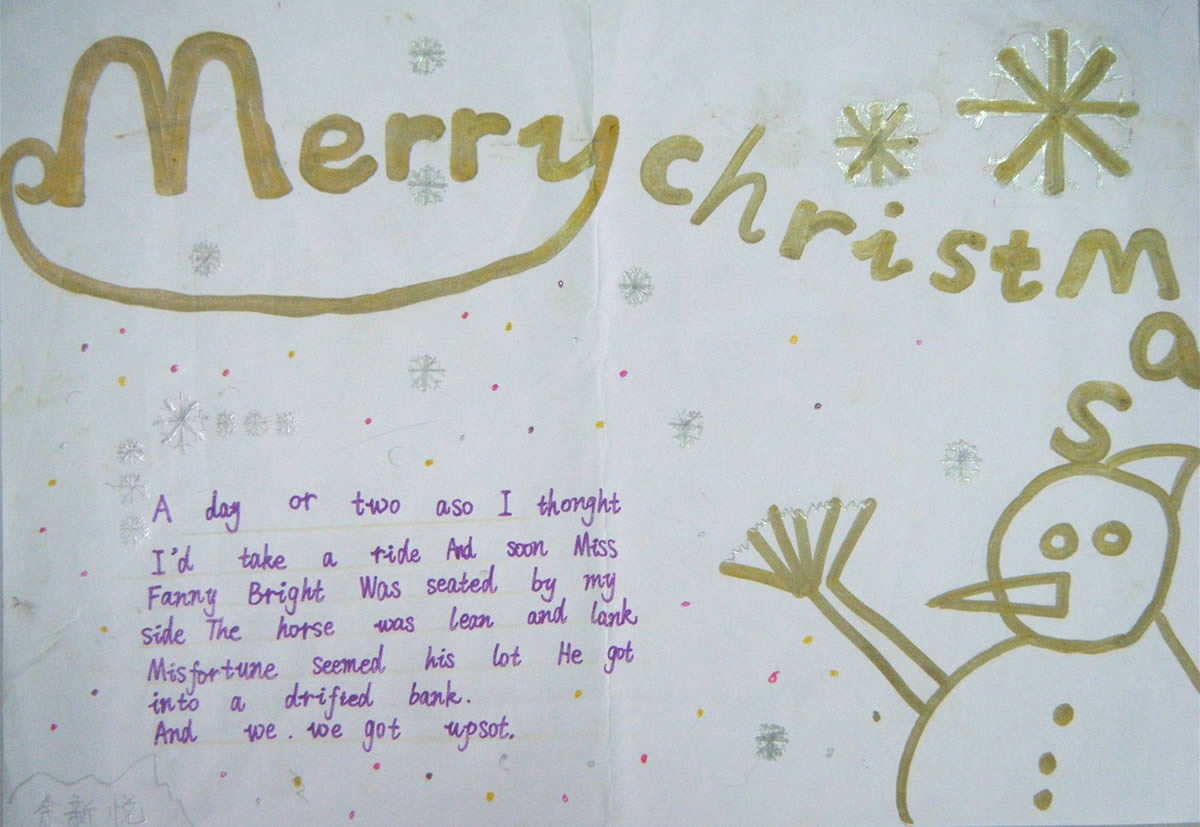 Merry christMas
A day or two aso I thonght
I'd take a ride And soon Miss
Fanny Bright Was seated by my
side The horse was lean and lank
Misfortune seemed his lot He got
into a drifted bank.
And we. we got upsot.
新悦